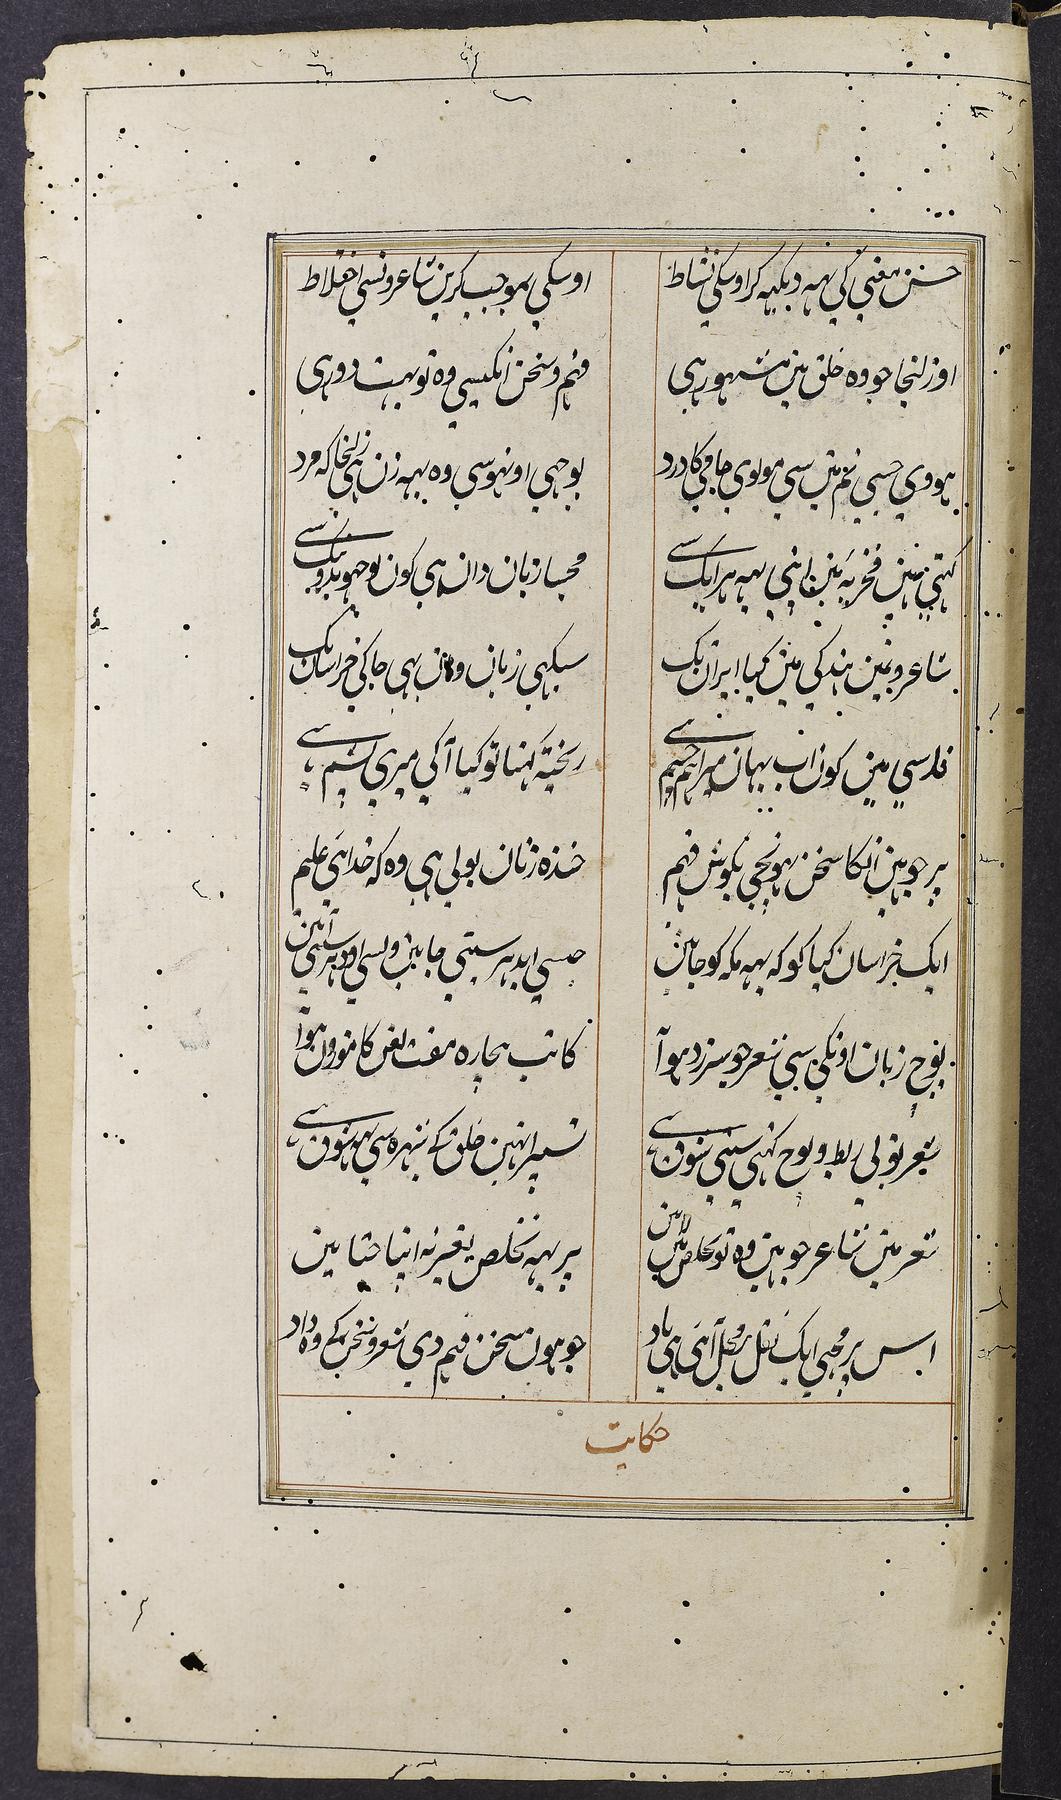 حسن معنی کی یہہ دیکہہ کر اوسکی نشاط
اوسکی بموجب کرین شاعرونسی اختلاط
اور زلیخا جو وہ خلق مین مشہور ہی
فہم و سخن انکیسی وہ تو بہت دور ہی
ہووی جسی نظم مین سی مولوی جامی کا درد
بوجہی اونہوسی وہ یہہ زن ہی زلیخا کہ مرد
کہتی ہین فخریہ مین اپنی یہہ ہر ایک سی
مجہسا زبان دان ہی کون بوجہو بد و نیک سی
شاعرونمین ہند کی مین کیا ایران تک
سیکہی زبان وہان بہی جا کی خراسان تک
فارسی مین کون اب یہان میرا ہم چشم ہی
ریختہ کہنا تو کیا آگی میری پشم ہی
پر جو ہین انکا سخن پہونچی بگوش فہم
خندہ زنان بولی ہی وہ کہ خداہی علیم
ایک خراسان کیا گو کہ یہہ مکہ کو جائین
جیسی ایدہر سیتی جائین ویسی اودہر سیتی آئین
پوچ زبان اونکی سی شعر جو سرزد ہوا
کاتب بیچارہ مفت لعن کا موزون ہوا
شعر تو بی ربط و پوچ کہنی سیتی شوق ہی
تسپر انہین خلق کے شہرہ سی ہو شوق ہی
شعر مین شاعر جو ہین وہ تو تخلص لاین
پر یہہ تخلص بغیر نہ اپنا جتاین
اس پر مجہی ایک نقل برمحل آئی ہی یاد
جو ہون سخن فہم دی شعر و سخن کے وہ داد
حکایت